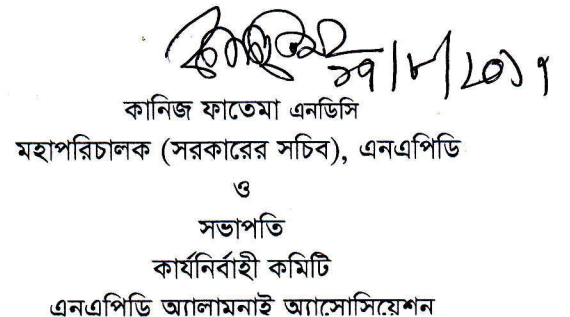 ২৭/৮/২০১৭
কানিজ ফাতেমা এনডিসি
মহাপরিচালক (সরকারের সচিব), এনএপিডি
ও
সভাপতি
কার্যনির্বাহী কমিটি
এনএপিডি অ্যালামনাই অ্যাসোসিয়েশন